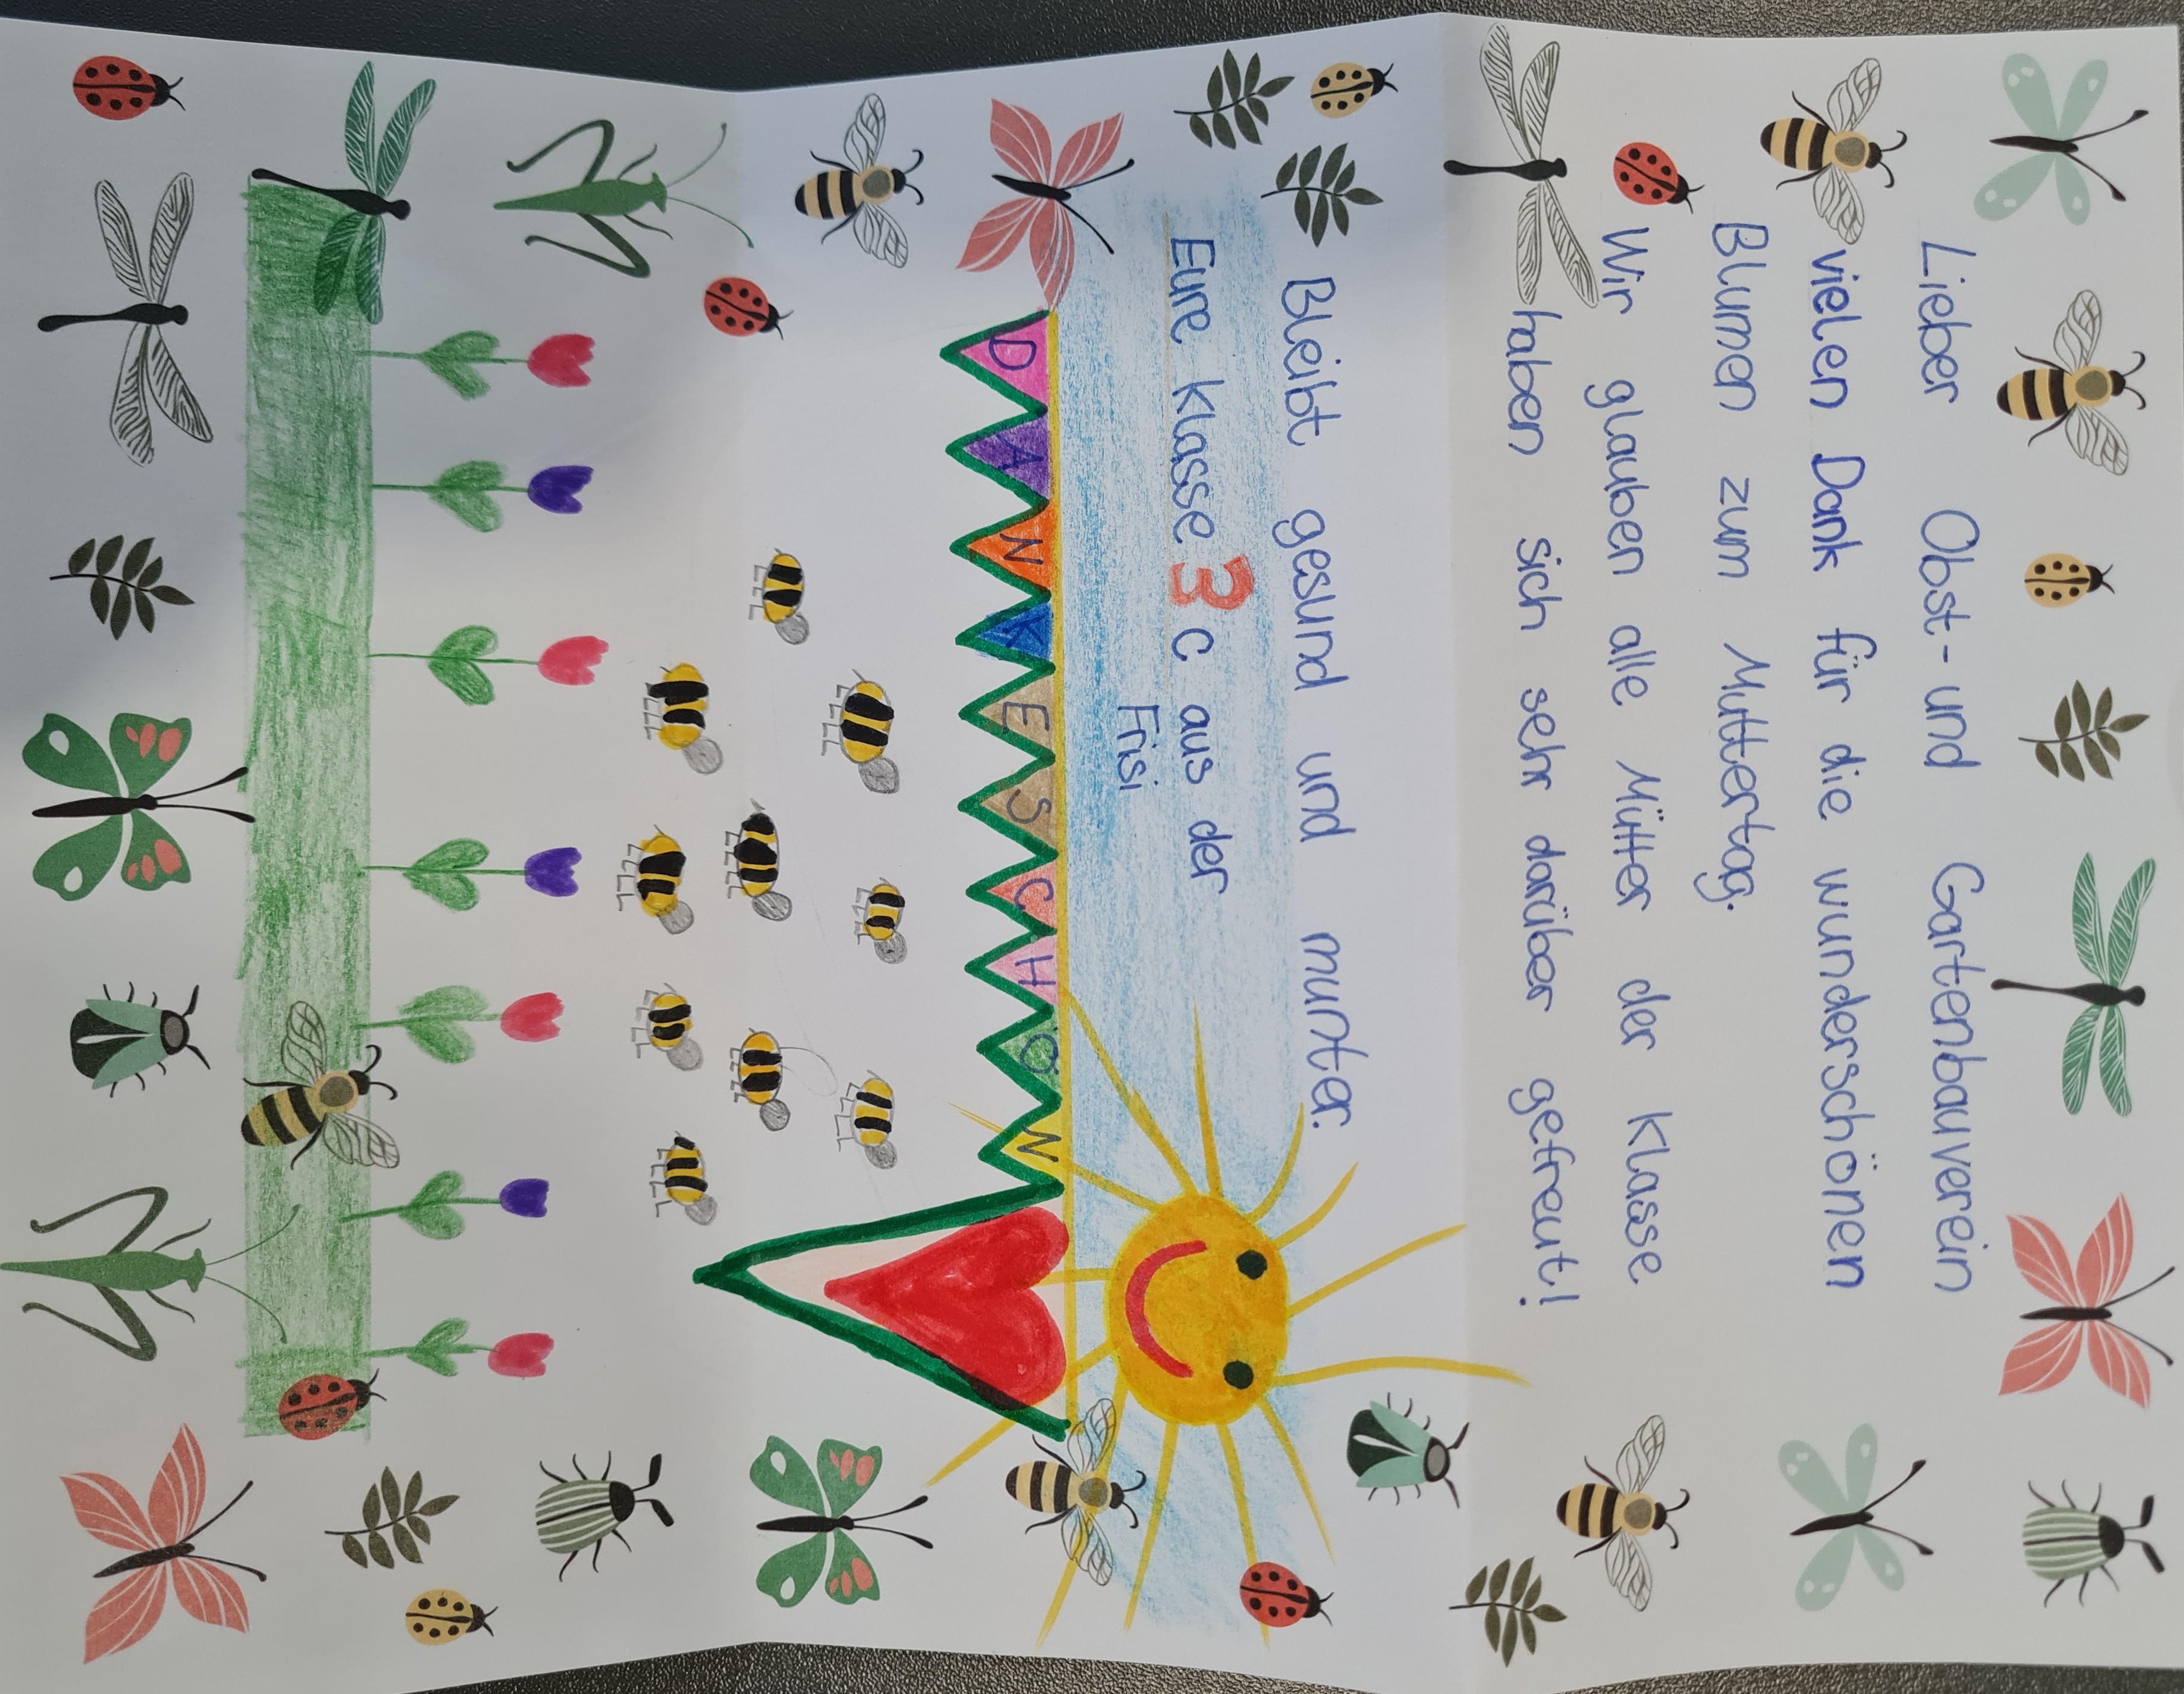 Lieber Obst- und Gartenbauverein
vielen Dank für die wunderschönen
Blumen zum Muttertag.
Wir glauben alle Mütter der Klasse
haben sich sehr darüber gefreut!
Bleibt gesund und munter.
Eure Klasse 3 c aus der
Frisi
DANKESCHÖN